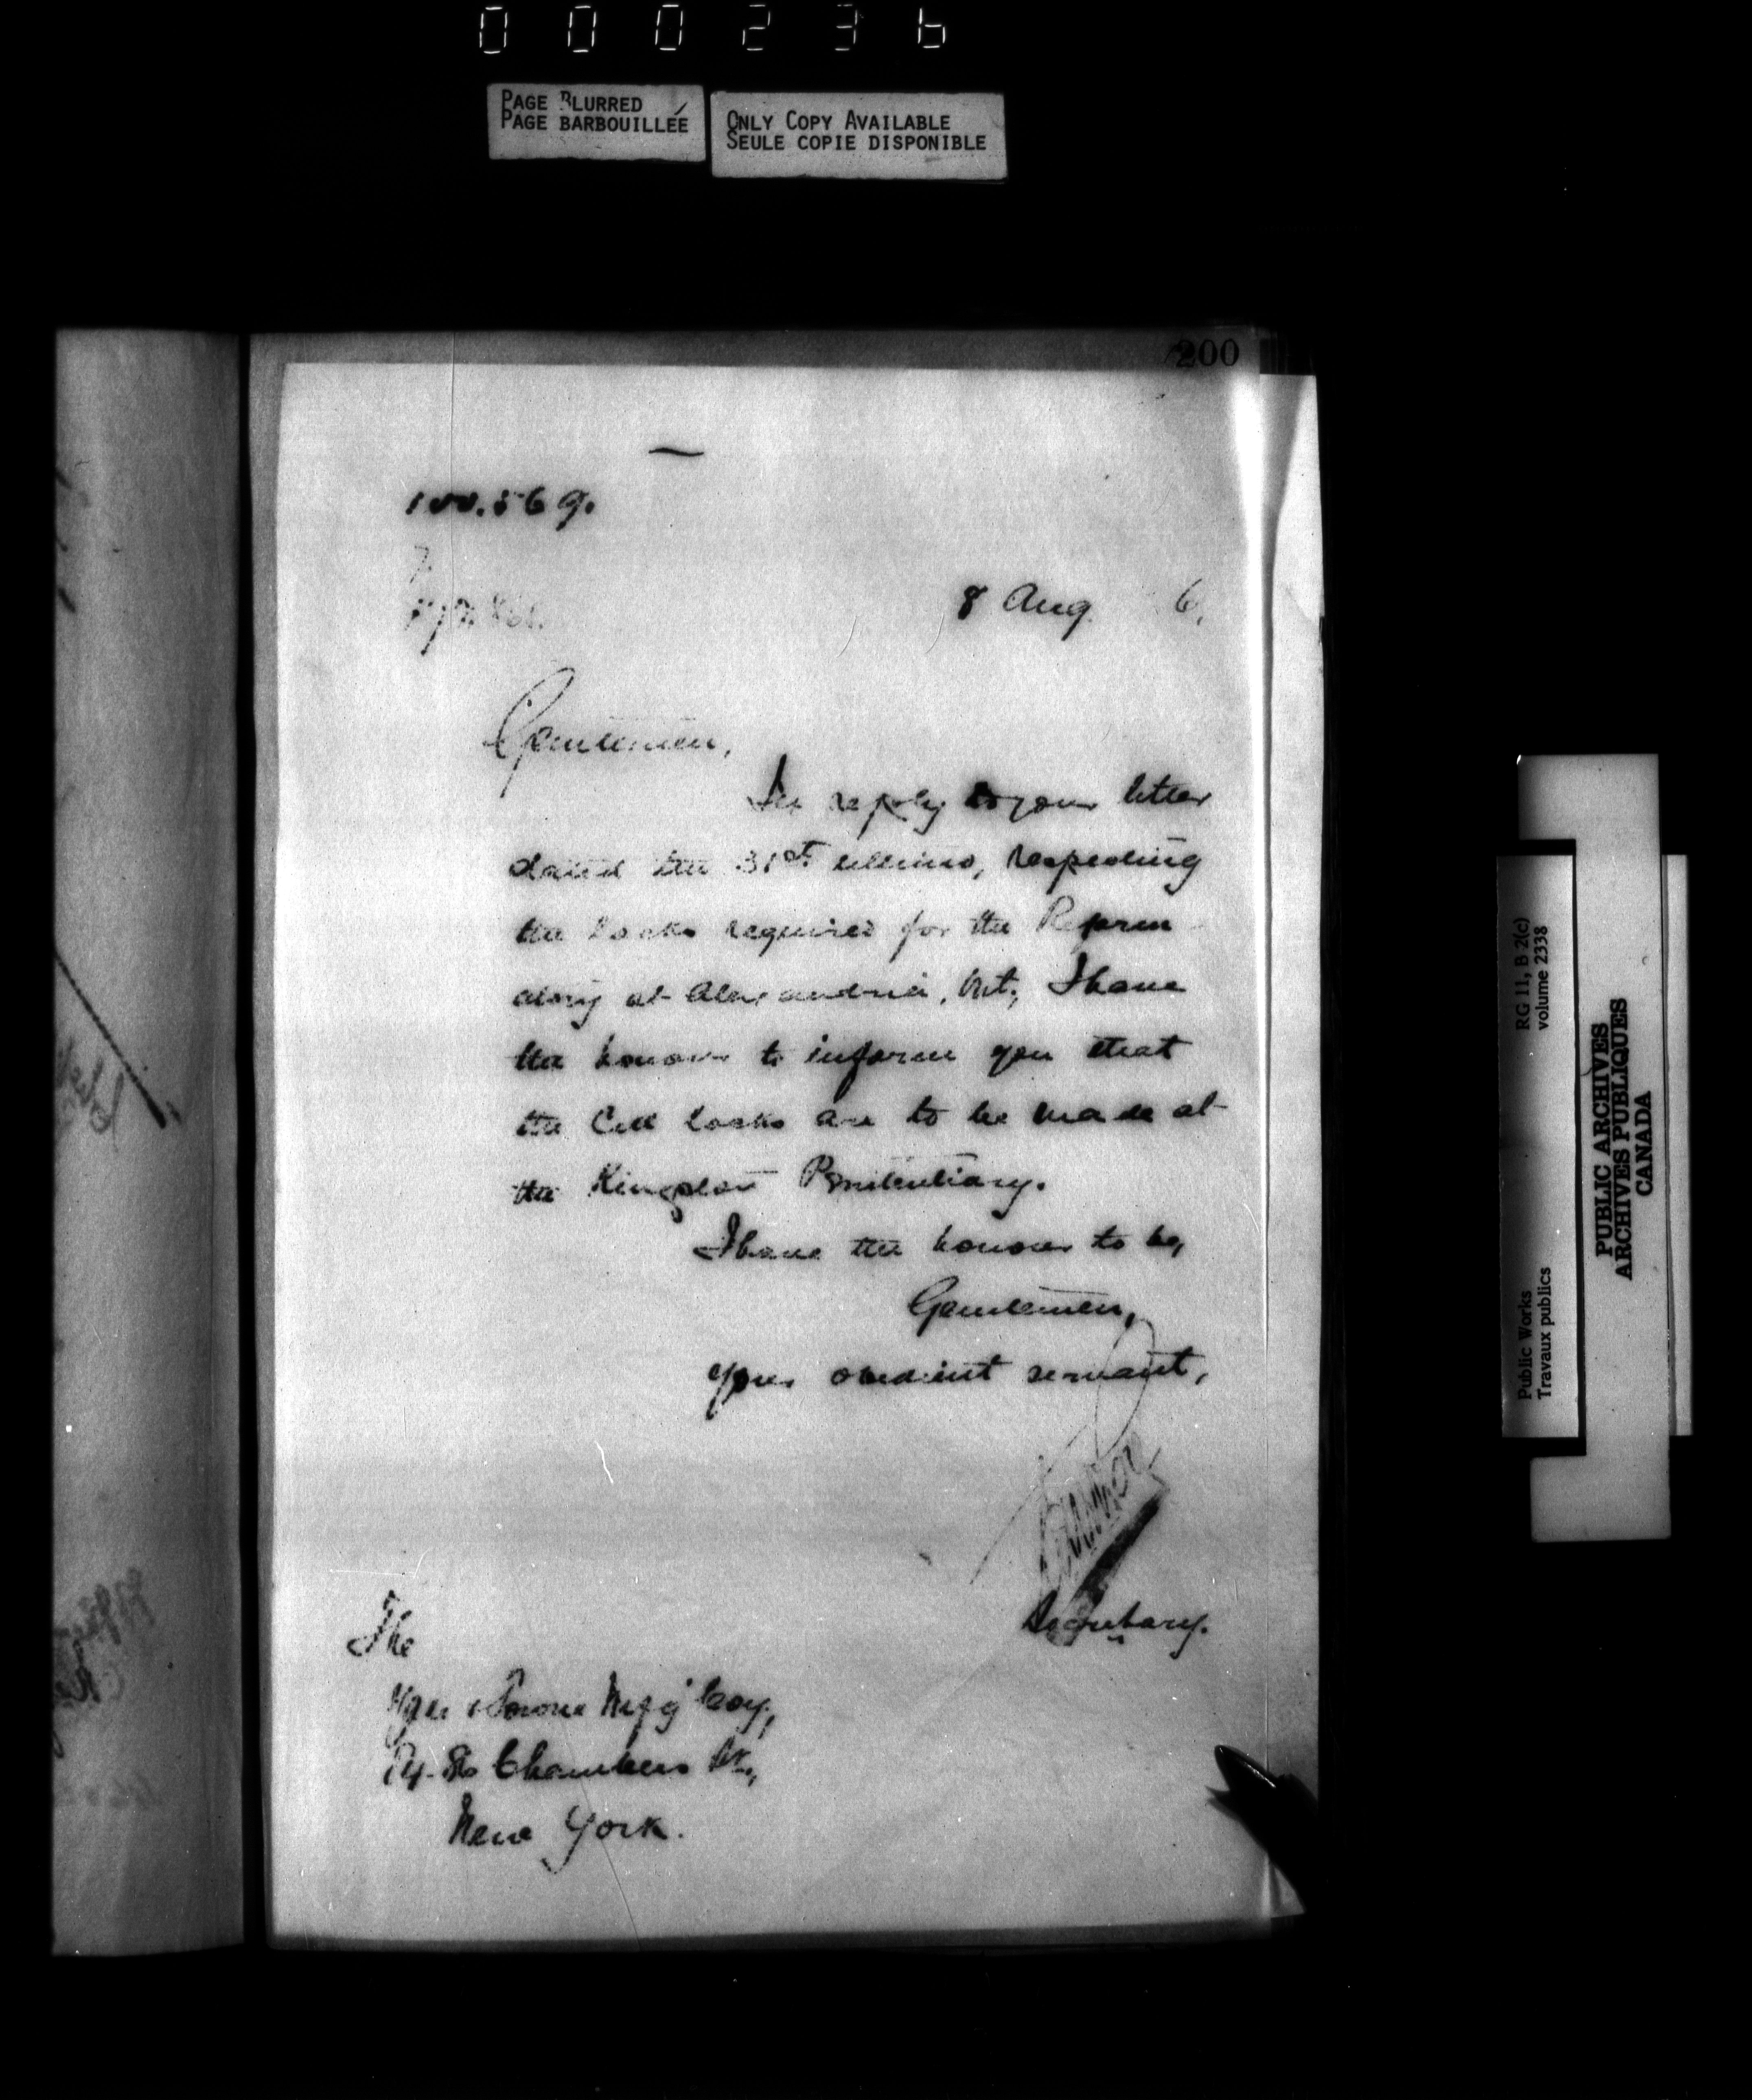 000236
PAGE BLURRED
PAGE BARBOUILLÉE
ONLY COPY AVAILABLE
SEULE COPIE DISPONIBLE
200
100.569.
8 Aug. 6.
Gentlemen,
In reply to your letter
dated the 31st ultimo, respecting
the locks required for the Reform
atory at Alexandria, Ont., I have
the honour to inform you that
the Cell locks are to be made at
the Kingston Penitentiary.
I have the honour to be,
Gentlemen,
Your obedient servant,
Secretary.
The
Yale & Towne Mfg Coy,
84-86 Chambers St.,
New York.
RG 11, B 2(c)
volume 2338
Public Works
Travaux publics
PUBLIC ARCHIVES
ARCHIVES PUBLIQUES
CANADA